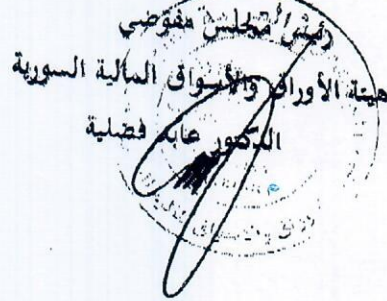 رئيس مجلس مفوضي
هيئة الأوراق والأسواق المالية السورية
الدكتور عابد فضلية